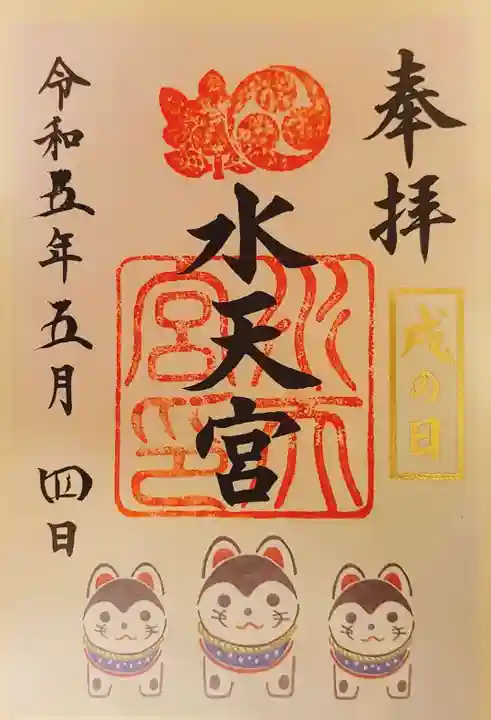 奉拝
戌の日
水天宮
水天宮印
令和五年五月四日